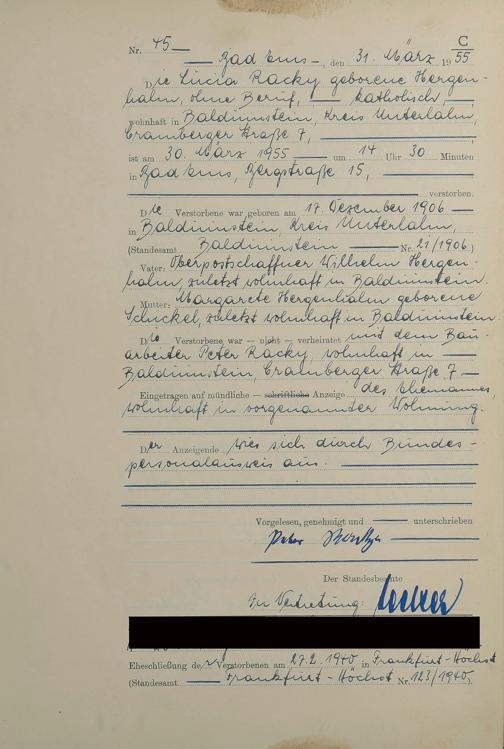 C
Nr. 45
Bad Ems, den 31. März 1955
Die Lucia Racky geborene Hergen-
hahn, ohne Beruf, katholisch,
wohnhaft in Balduinstein, Kreis Unterlahn,
Cramberger Straße 7,
ist am 30. März 1955 um 14 Uhr 30 Minuten
in Bad Ems, Bergstraße 15,
verstorben.
Die Verstorbene war geboren am 17. Dezember 1906
in Balduinstein, Kreis Unterlahn,
(Standesamt Balduinstein Nr. 21/1906)
Vater: Oberpostschaffner Wilhelm Hergen-
hahn, zuletzt wohnhaft in Balduinstein.
Mutter: Margarete Hergenhahn geborene
Schickel, zuletzt wohnhaft in Balduinstein.
Die Verstorbene war — nicht — verheiratet mit dem Bau-
arbeiter Peter Racky, wohnhaft in
Balduinstein, Cramberger Straße 7.
Eingetragen auf mündliche — schriftliche Anzeige des Ehemannes,
wohnhaft in vorgenannter Wohnung.
Der Anzeigende wies sich durch Bundes-
personalausweis aus.
Vorgelesen, genehmigt und unterschrieben
Peter
Der Standesbeamte
In Vertretung:
Eheschließung der Verstorbenen am 27.2.1940 in Frankfurt-Höchst
(Standesamt Frankfurt-Höchst Nr. 123/1940)